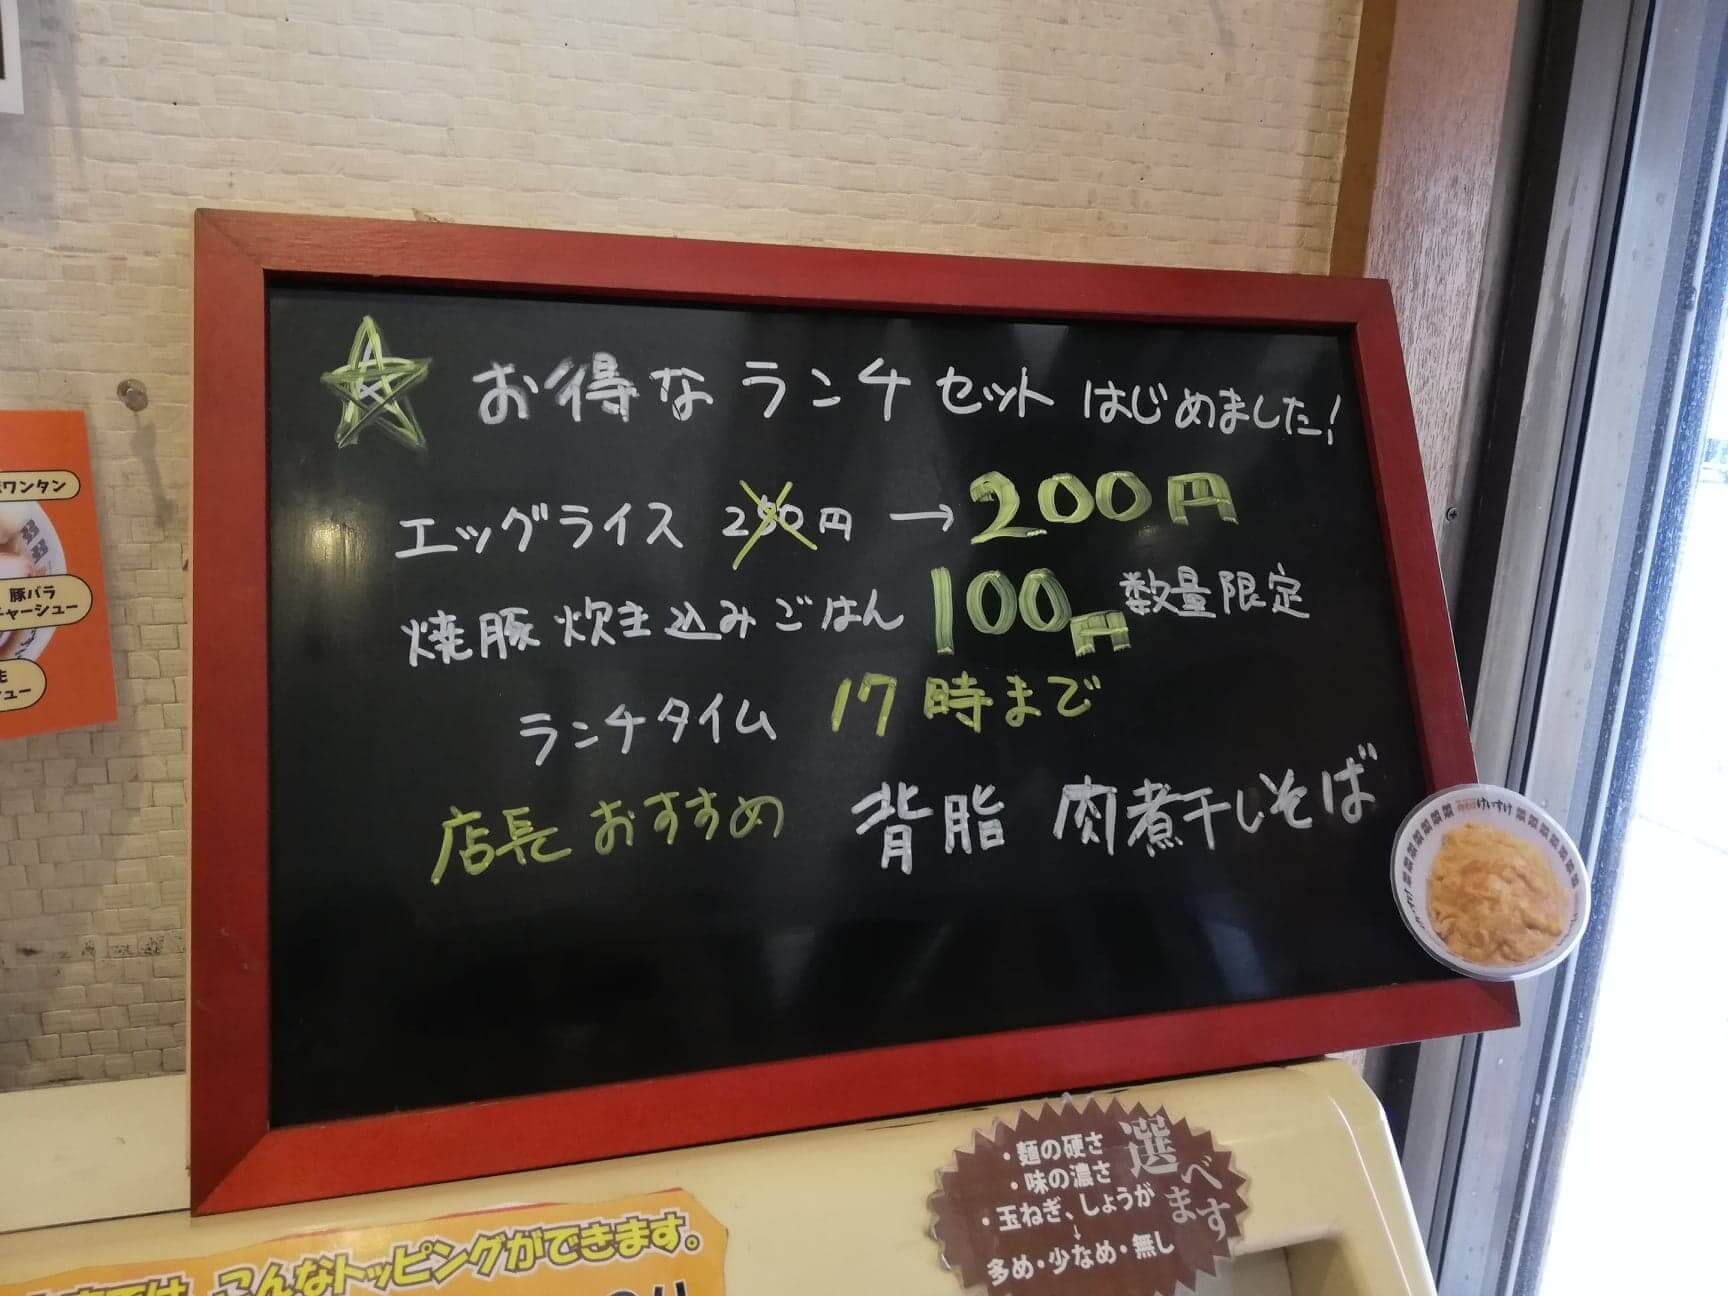 お得なランチセットはじめました!
エッグライス 円 → 200円
焼豚炊き込みごはん 100円 数量限定
ランチタイム 17時まで
店長おすすめ 背脂 肉煮干しそば
ワンタン
豚バラ
チャーシュー
けいすけ
選べます
・麺の硬さ
・味の濃さ
・玉ねぎ、しょうが
↓
多め・少なめ・無し
こんなトッピングができます。